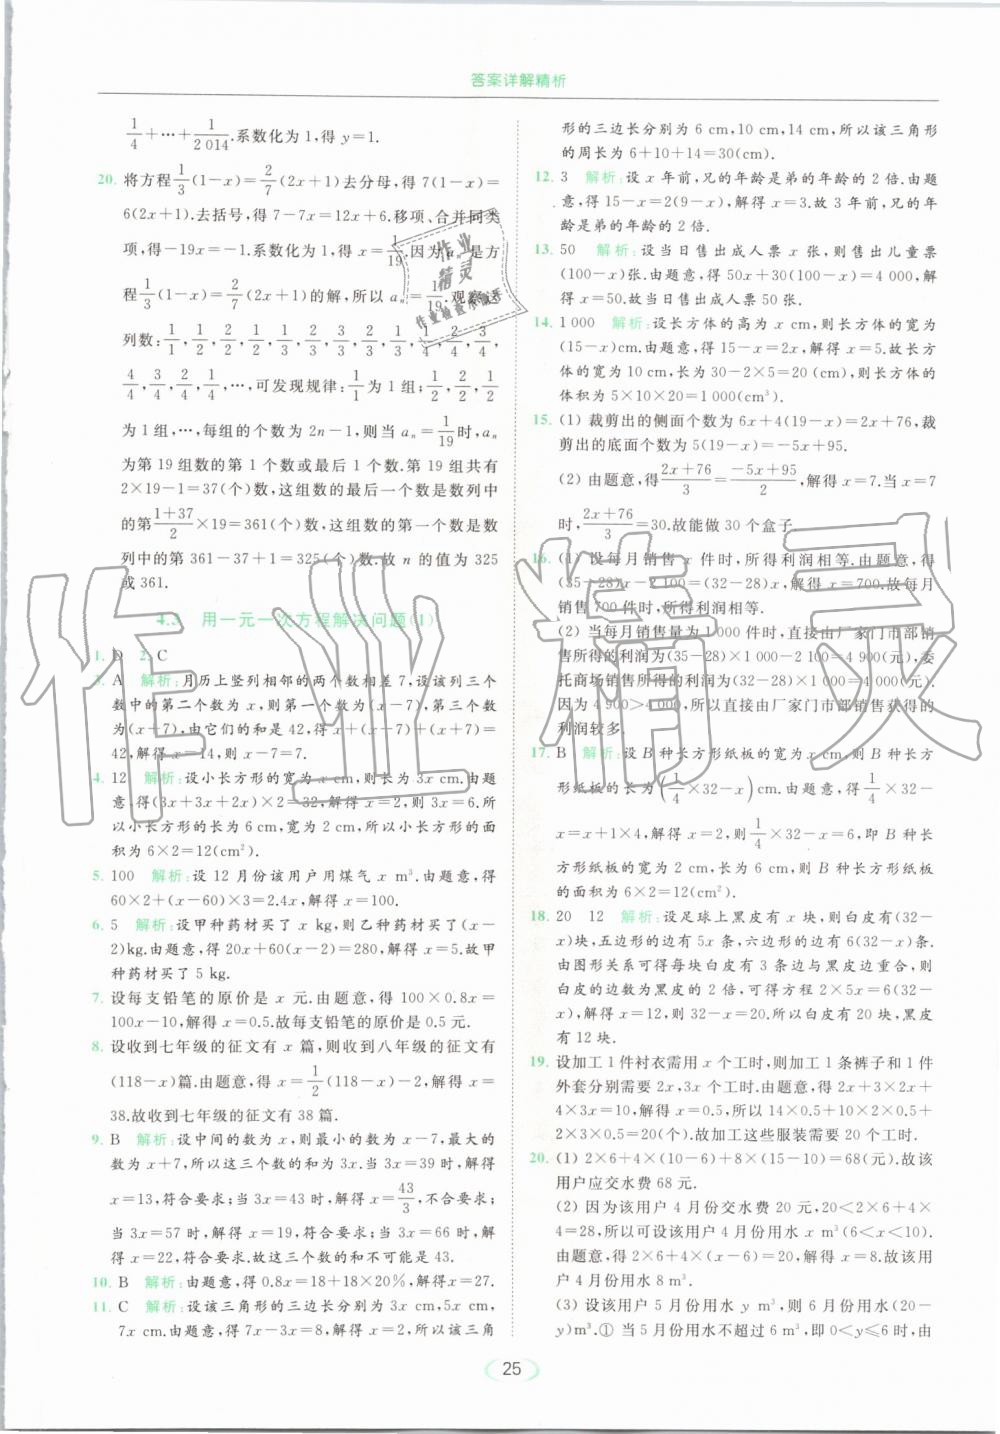 答案详解精析
1/4+…+1/2 014.系数化为 1,得 y=1.
20. 将方程1/3(1-x)=2/7(2x+1)去分母,得 7(1-x)=
6(2x+1).去括号,得 7-7x=12x+6.移项、合并同类
项,得-19x=-1.系数化为 1,得 x=1/19.因为aₙ是方
程1/3(1-x)=2/7(2x+1)的解,所以 aₙ=1/19.观察这
列数:1/1,1/2,2/2,1/2,1/3,2/3,3/3,2/3,1/3,1/4,2/4,3/4,
4/4,3/4,2/4,1/4,…,可发现规律:1/1为 1 组;1/2,2/2,1/2
为 1 组,…,每组的个数为 2n-1,则当 aₙ=1/19时,aₙ
为第 19 组数的第 1 个数或最后 1 个数.第 19 组共有
2×19-1=37(个)数,这组数的最后一个数是数列中
的第(1+37)/2×19=361(个)数,这组数的第一个数是数
列中的第 361-37+1=325(个)数.故 n 的值为 325
或 361.
4.3 用一元一次方程解决问题(1)
1. D 2. C
3. A 解析:月历上竖列相邻的两个数相差 7,设该列三个
数中的第二个数为 x,则第一个数为(x-7),第三个数
为(x+7),由它们的和是 42,得(x-7)+x+(x+7)=
42,解得 x=14,则 x-7=7.
4. 12 解析:设小长方形的宽为 x cm,则长为 3x cm.由题
意,得(3x+3x+2x)×2=32,解得 x=2,则 3x=6.所
以小长方形的长为 6 cm,宽为 2 cm,所以小长方形的面
积为 6×2=12(cm²).
5. 100 解析:设 12 月份该用户用煤气 x m³.由题意,得
60×2+(x-60)×3=2.4x,解得 x=100.
6. 5 解析:设甲种药材买了 x kg,则乙种药材买了(x-
2)kg.由题意,得 20x+60(x-2)=280,解得 x=5.故甲
种药材买了 5 kg.
7. 设每支铅笔的原价是 x 元.由题意,得 100×0.8x=
100x-10,解得 x=0.5.故每支铅笔的原价是 0.5 元.
8. 设收到七年级的征文有 x 篇,则收到八年级的征文有
(118-x)篇.由题意,得 x=1/2(118-x)-2,解得 x=
38.故收到七年级的征文有 38 篇.
9. B 解析:设中间的数为 x,则最小的数为 x-7,最大的
数为 x+7,所以这三个数的和为 3x.当 3x=39 时,解得
x=13,符合要求;当 3x=43 时,解得 x=43/3,不合要求;
当 3x=57 时,解得 x=19,符合要求;当 3x=66 时,解
得 x=22,符合要求.故这三个数的和不可能是 43.
10. B 解析:由题意,得 0.8x=18+18×20%,解得 x=27.
11. C 解析:设该三角形的三边长分别为 3x cm,5x cm,
7x cm.由题意,得 7x-3x=8,解得 x=2,所以该三角
形的三边长分别为 6 cm,10 cm,14 cm,所以该三角形
的周长为 6+10+14=30(cm).
12. 3 解析:设 x 年前,兄的年龄是弟的年龄的 2 倍.由题
意,得 15-x=2(9-x),解得 x=3.故 3 年前,兄的年
龄是弟的年龄的 2 倍.
13. 50 解析:设当日售出成人票 x 张,则售出儿童票
(100-x)张.由题意,得 50x+30(100-x)=4 000,解
得 x=50.故当日售出成人票 50 张.
14. 1 000 解析:设长方体的高为 x cm,则长方体的宽为
(15-x)cm.由题意,得 15-x=2x,解得 x=5.故长方
体的宽为 10 cm,长为 30-2×5=20 (cm),则长方体的
体积为 5×10×20=1 000(cm³).
15. (1) 裁剪出的侧面个数为 6x+4(19-x)=2x+76,裁
剪出的底面个数为 5(19-x)=-5x+95.
(2) 由题意,得(2x+76)/3=(-5x+95)/2,解得 x=7.当 x=7
时,(2x+76)/3=30.故能做 30 个盒子.
16. (1) 设每月销售 x 件时,所得利润相等.由题意,得
(35-28)x-2 100=(32-28)x,解得 x=700.故每月
销售 700 件时,所得利润相等.
(2) 当每月销售量为 1 000 件时,直接由厂家门市部销
售所得的利润为(35-28)×1 000-2 100=4 900(元),委
托商场销售所得的利润为(32-28)×1 000=4 000(元).
因为 4 900>4 000,所以直接由厂家门市部销售获得的
利润较多.
17. B 解析:设 B 种长方形纸板的宽为 x cm,则 B 种长方
形纸板的长为(1/4×32-x)cm.由题意,得1/4×32-
x=x+1×4,解得 x=2,则1/4×32-x=6,即 B 种长
方形纸板的宽为 2 cm,长为 6 cm,则 B 种长方形纸板
的面积为 6×2=12(cm²).
18. 20 12 解析:设足球上黑皮有 x 块,则白皮有(32-
x)块,五边形的边有 5x 条,六边形的边有 6(32-x)条.
由图形关系可得每块白皮有 3 条边与黑皮边重合,则
白皮的边数为黑皮的 2 倍,可得方程 2×5x=6(32-
x),解得 x=12,则 32-x=20.所以白皮有 20 块,黑皮
有 12 块.
19. 设加工 1 件衬衣需用 x 个工时,则加工 1 条裤子和 1 件
外套分别需要 2x,3x 个工时.由题意,得 2x+3×2x+
4×3x=10,解得 x=0.5,所以 14×0.5+10×2×0.5+
2×3×0.5=20(个).故加工这些服装需要 20 个工时.
20. (1) 2×6+4×(10-6)+8×(15-10)=68(元).故该
用户应交水费 68 元.
(2) 因为该用户 4 月份交水费 20 元,2×6+4×
4=28,所以可设该用户 4 月份用水 x m³(6<x<10).
由题意,得 2×6+4×(x-6)=20,解得 x=8.故该用
户 4 月份用水 8 m³.
(3) 设该用户 5 月份用水 y m³,则 6 月份用水(20-
y)m³.① 当 5 月份用水不超过 6 m³,即 0<y≤6 时,由
25
作业精灵
作业
精灵